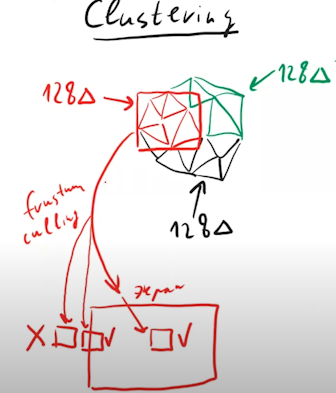 Clustering
128△
128△
128△
frustum
culling
экран
X
V
V